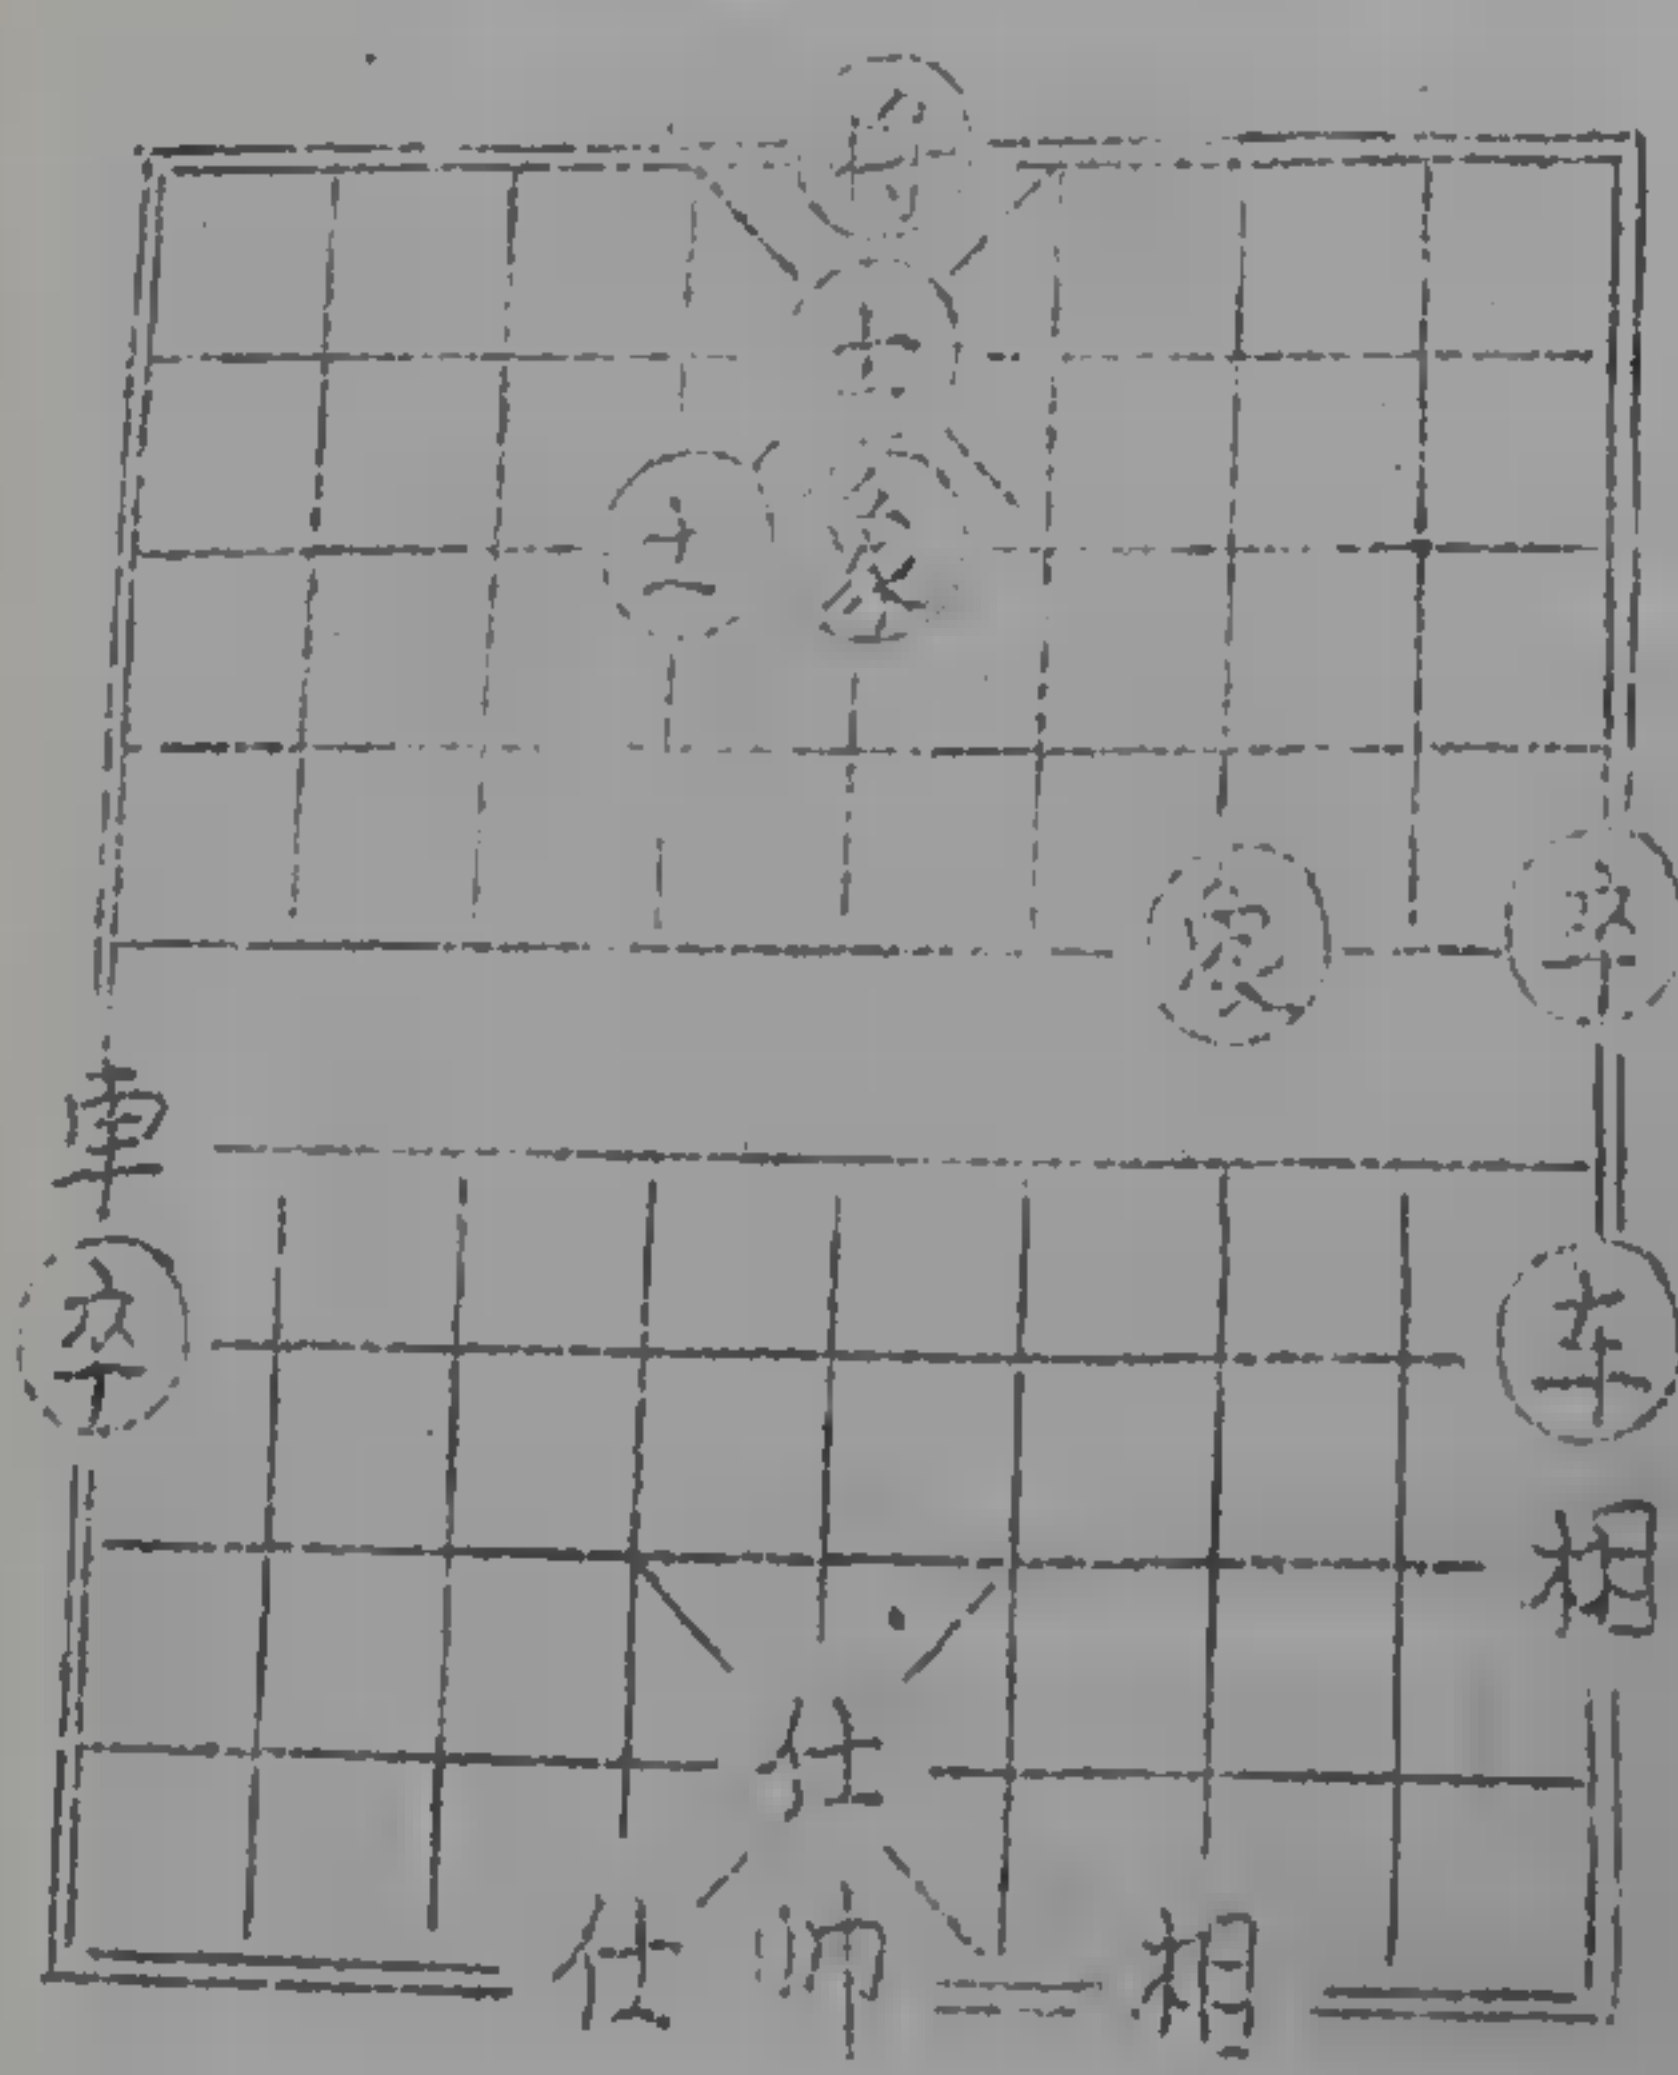 士
士
象
象 卒
車
卒 车
相
仕
仕 帅 相